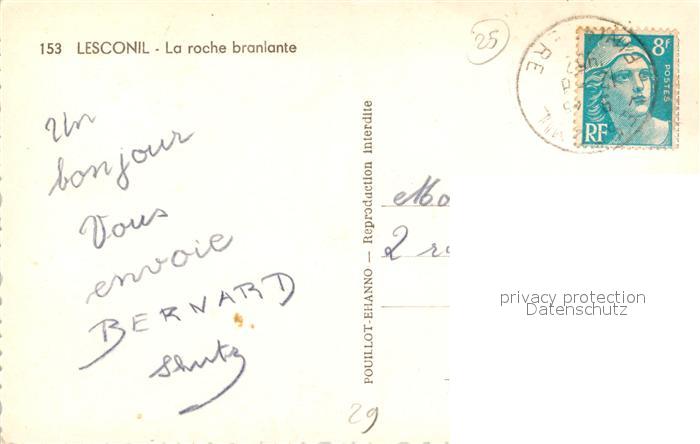 153 LESCONIL - La roche branlante
25
8F
POSTES
RF
Un
bonjour
Vous
envoie
BERNARD
Shutz
POUILLOT-EHANNO — Reproduction interdite
Mo
2 r
privacy protection
Datenschutz
29